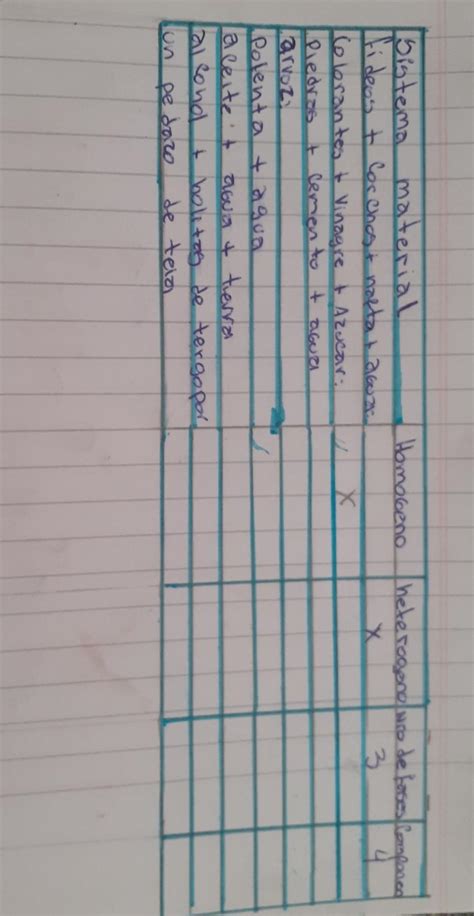 Sistema material Homogeno heterogeno Nro de fases Componen
fideos + Corchos + nafta + agua. X 3 4
Colorantes + Vinagre + Azucar. X
Piedras + Cemento + agua
arroz.
Polenta + agua
aceite + agua + tierra
alcohol + bolitas de tergopor
un pedazo de tela